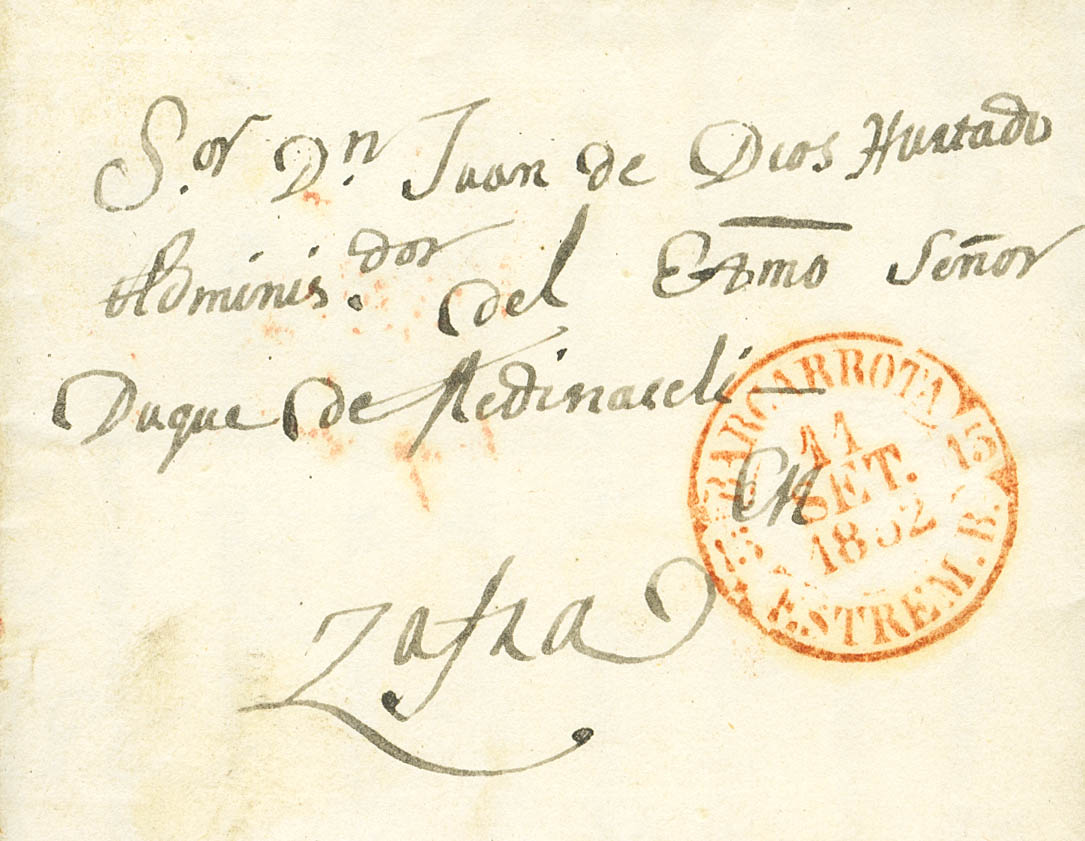 S.or Dn. Juan de Dios Hurtado
Adminis.dor del Exmo Señor
Duque de Medinaceli
en
Zafra
BARCARROTA
15 15
11
SET.
1852
ESTREM. B.